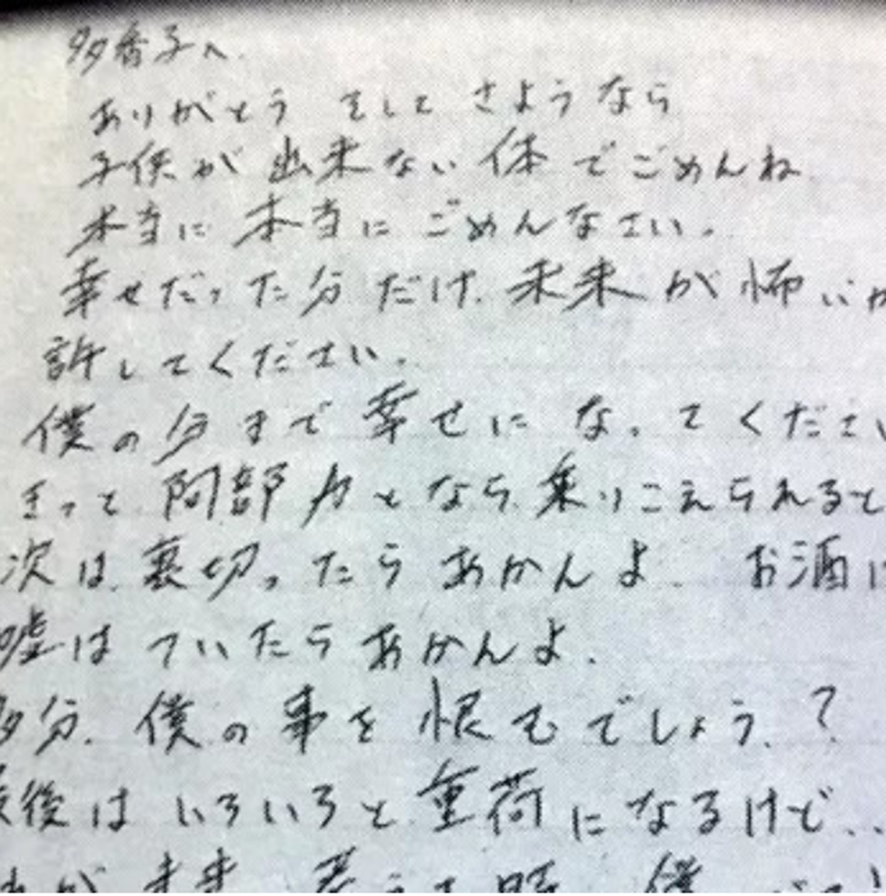 多香子へ
ありがとう そして さようなら
子供が 出来ない 体 でごめんね
本当に 本当に ごめんなさい.
幸せだった分 だけ. 未来 が 怖いか
許してください.
僕の分まで 幸せに なってください
きっと 阿部 力 となら. 乗りこえられると
次は. 裏切ったら あかんよ. お酒に
嘘は ついたら あかんよ.
多分. 僕の事を 恨むでしょう.?
最後は いろいろと 重荷 になるけど...
未来 時 僕